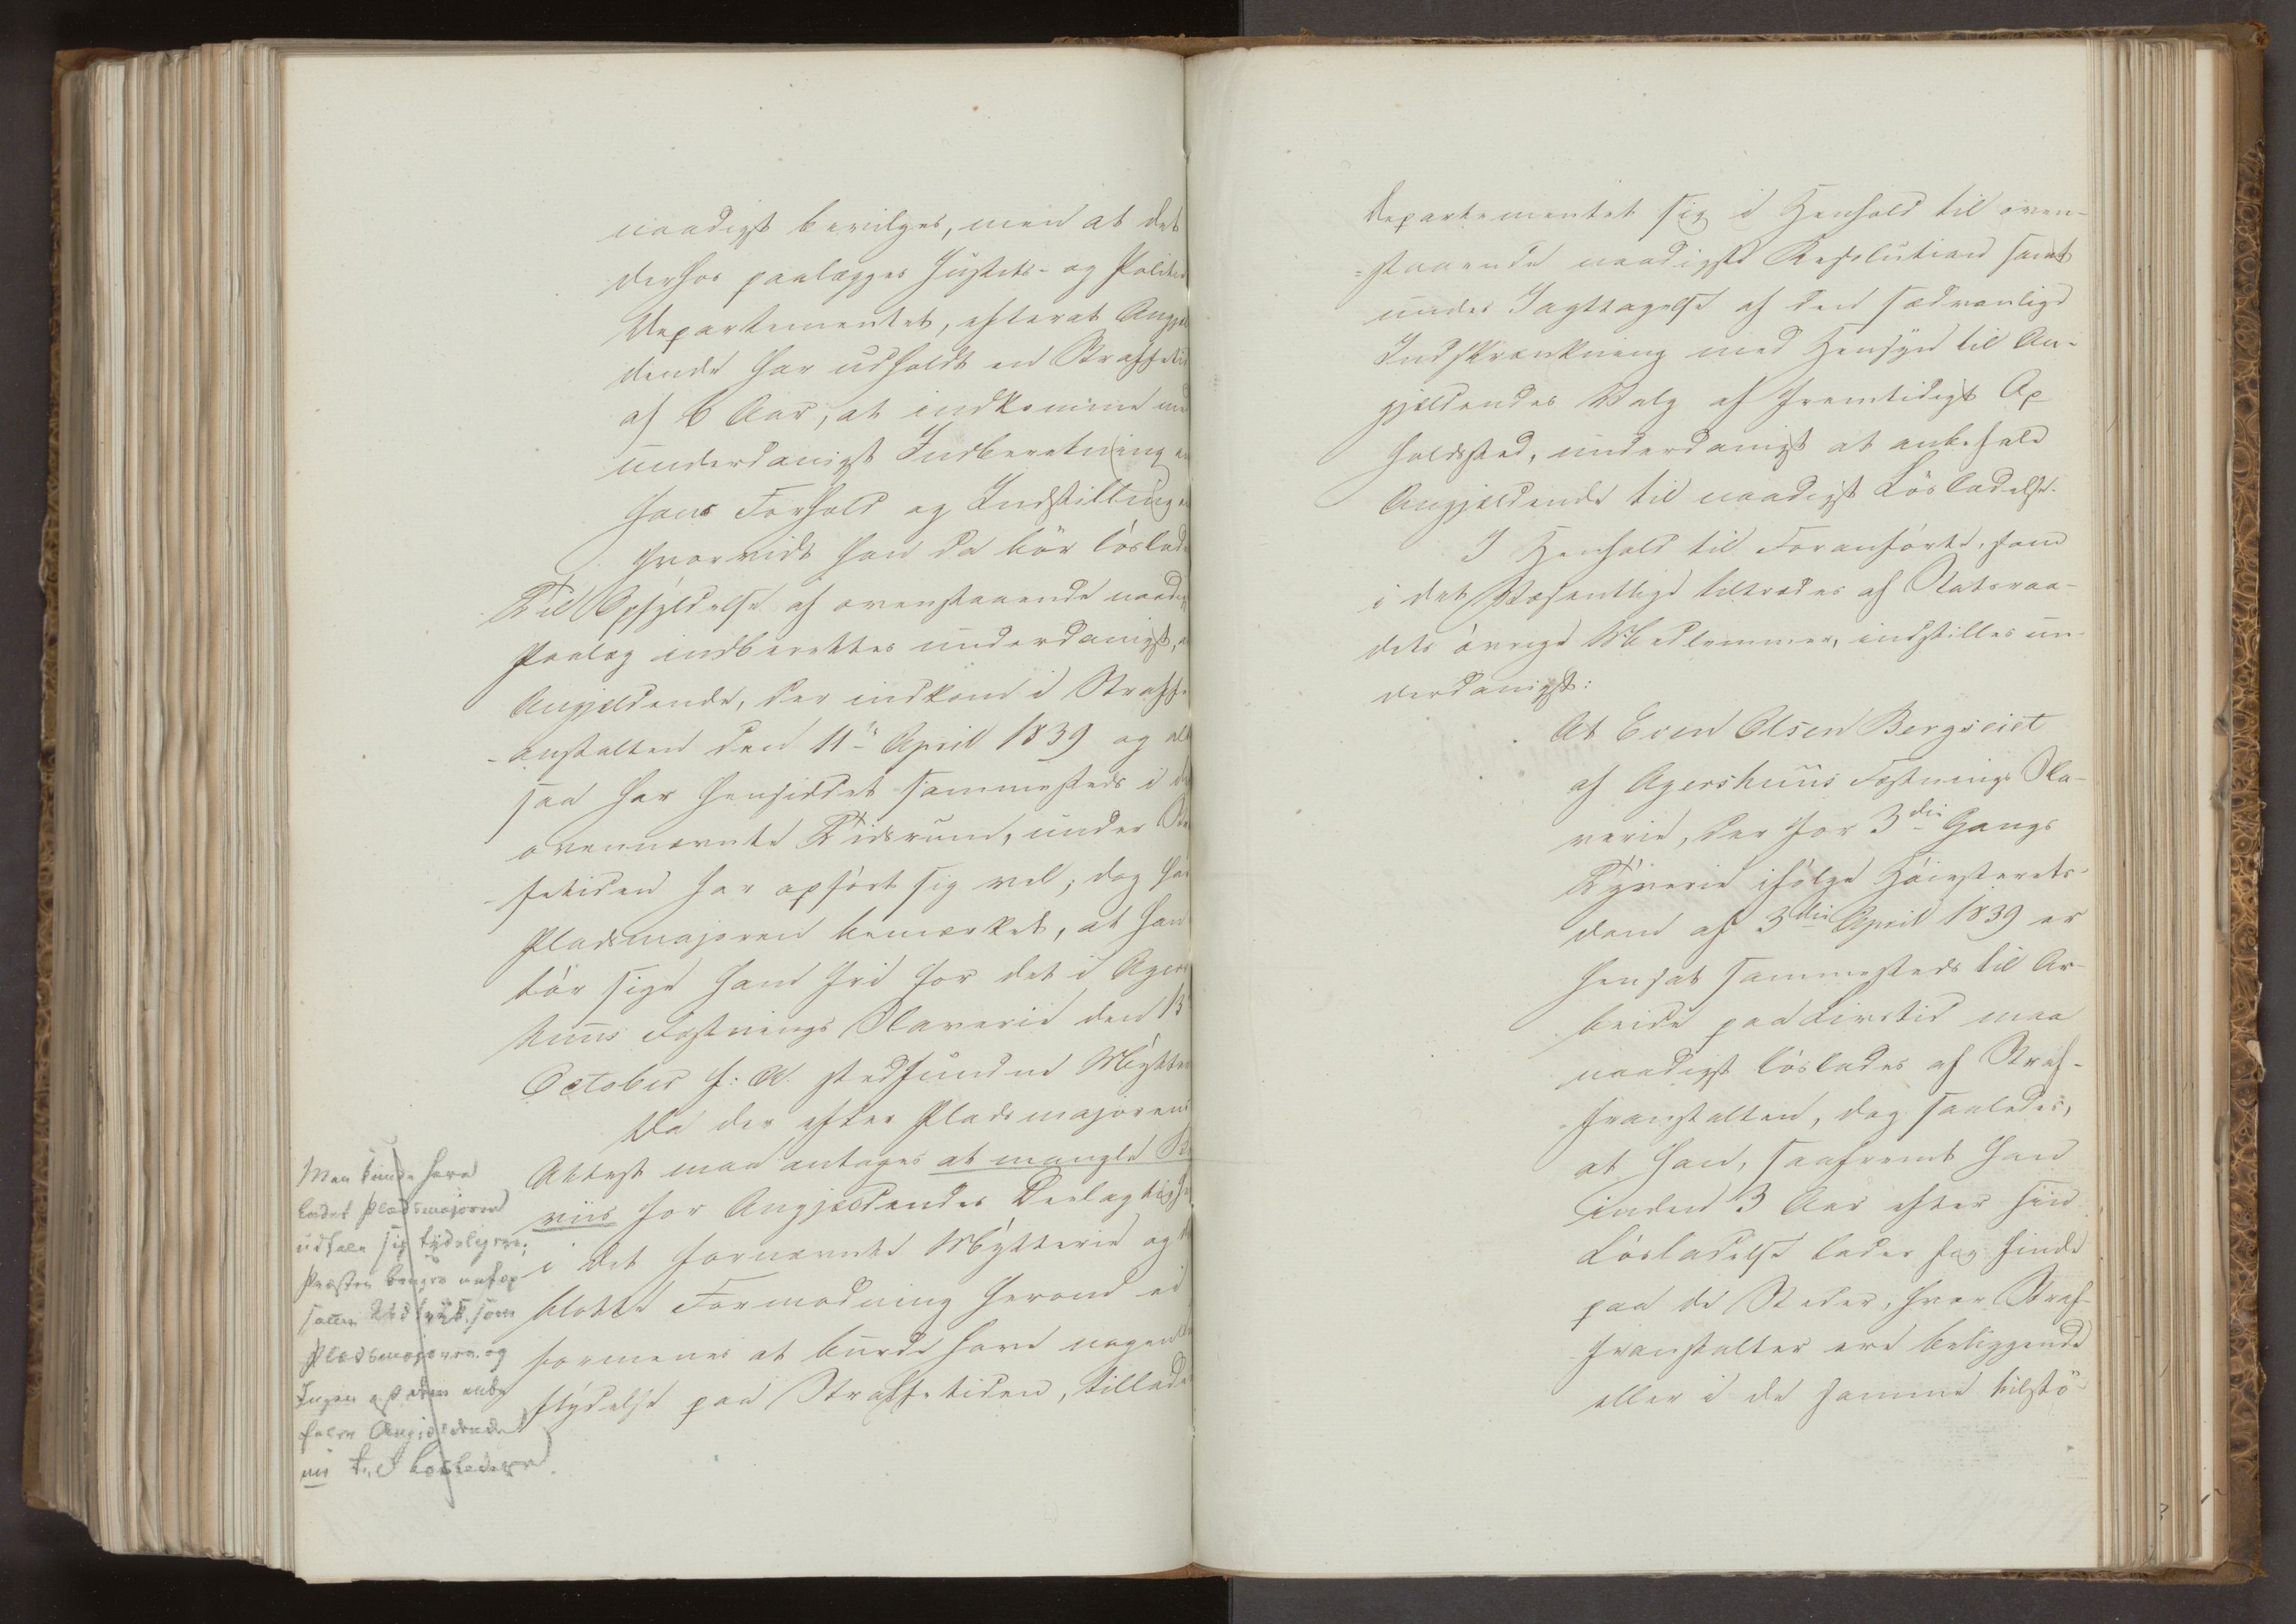 naadigst bevilges, men at det
derhos paalægges Justits- og Politie
Departementet, efterat Angjel
dende har udholdt en Straffetid
af 6 Aar, at indkomme med
underdanigst Indberetning om
hans Forhold og Indstilling om
hvorvidt han da bör löslades
Til Opfyldelse af ovenstaaende naadigste
Paalæg indberettes underdanigst, at
Angjældende, der indkom i Straffe-
anstalten den 11te April 1839 og alt
saa har hensiddet sammesteds i det
ovennævnte Tidsrum, under Straf
fetiden har opfört sig vel; dog har
Pladsmajoren bemærket, at han
tör sige ham fri for det i Agers
huus Fæstnings Slaverie den 13
October f: A. stedfundne Mytterie
Da der efter Pladsmajorens
Attest maa antages at mangle Be
viis for Angjældendes Deelagtighed
i det fornævnte Mytterie og
blotte Formodning herom ei
formenes at burde have nogen Ind
flydelse paa Straffetiden, tillader
Man kunde have
ladet Pladsmajoren
udtale sig tydeligere;
Præsten bruger
samme Udtryk som
Pladsmajoren og
Ingen af dem anbe
faler Angjeldende
nu til Lösladelse.
Departementet sig i Henhold til oven-
staaende naadigste Resolution samt
under Iagttagelse af den sædvanlige
Indskrænkning med Hensyn til An-
gjældendes Valg af fremtidigt Op
holdssted, underdanigst at anbefale
Angjældende til naadigst Lösladelse.
I Henhold til Foranförte, som
i det Væsentlige tiltrædes af Statsraa-
dets övrige Medlemmer, indstilles un-
derdanigst:
At Even Olsen Bergseiet
af Agershuus Fæstnings Sla-
verie, der for 3die Gangs
Tyverie ifölge Höiesterets-
dom af 3die April 1839 er
hensat sammesteds til Ar-
beide paa Livstid maa
naadigst löslades af Straf-
feanstalten, dog saaledes,
at han, saafremt han
inden 3 Aar efter sin
Lösladelse lader sig finde
paa de Steder, hvor Straf-
feanstalter ere beliggende
eller i de samme tilstö-